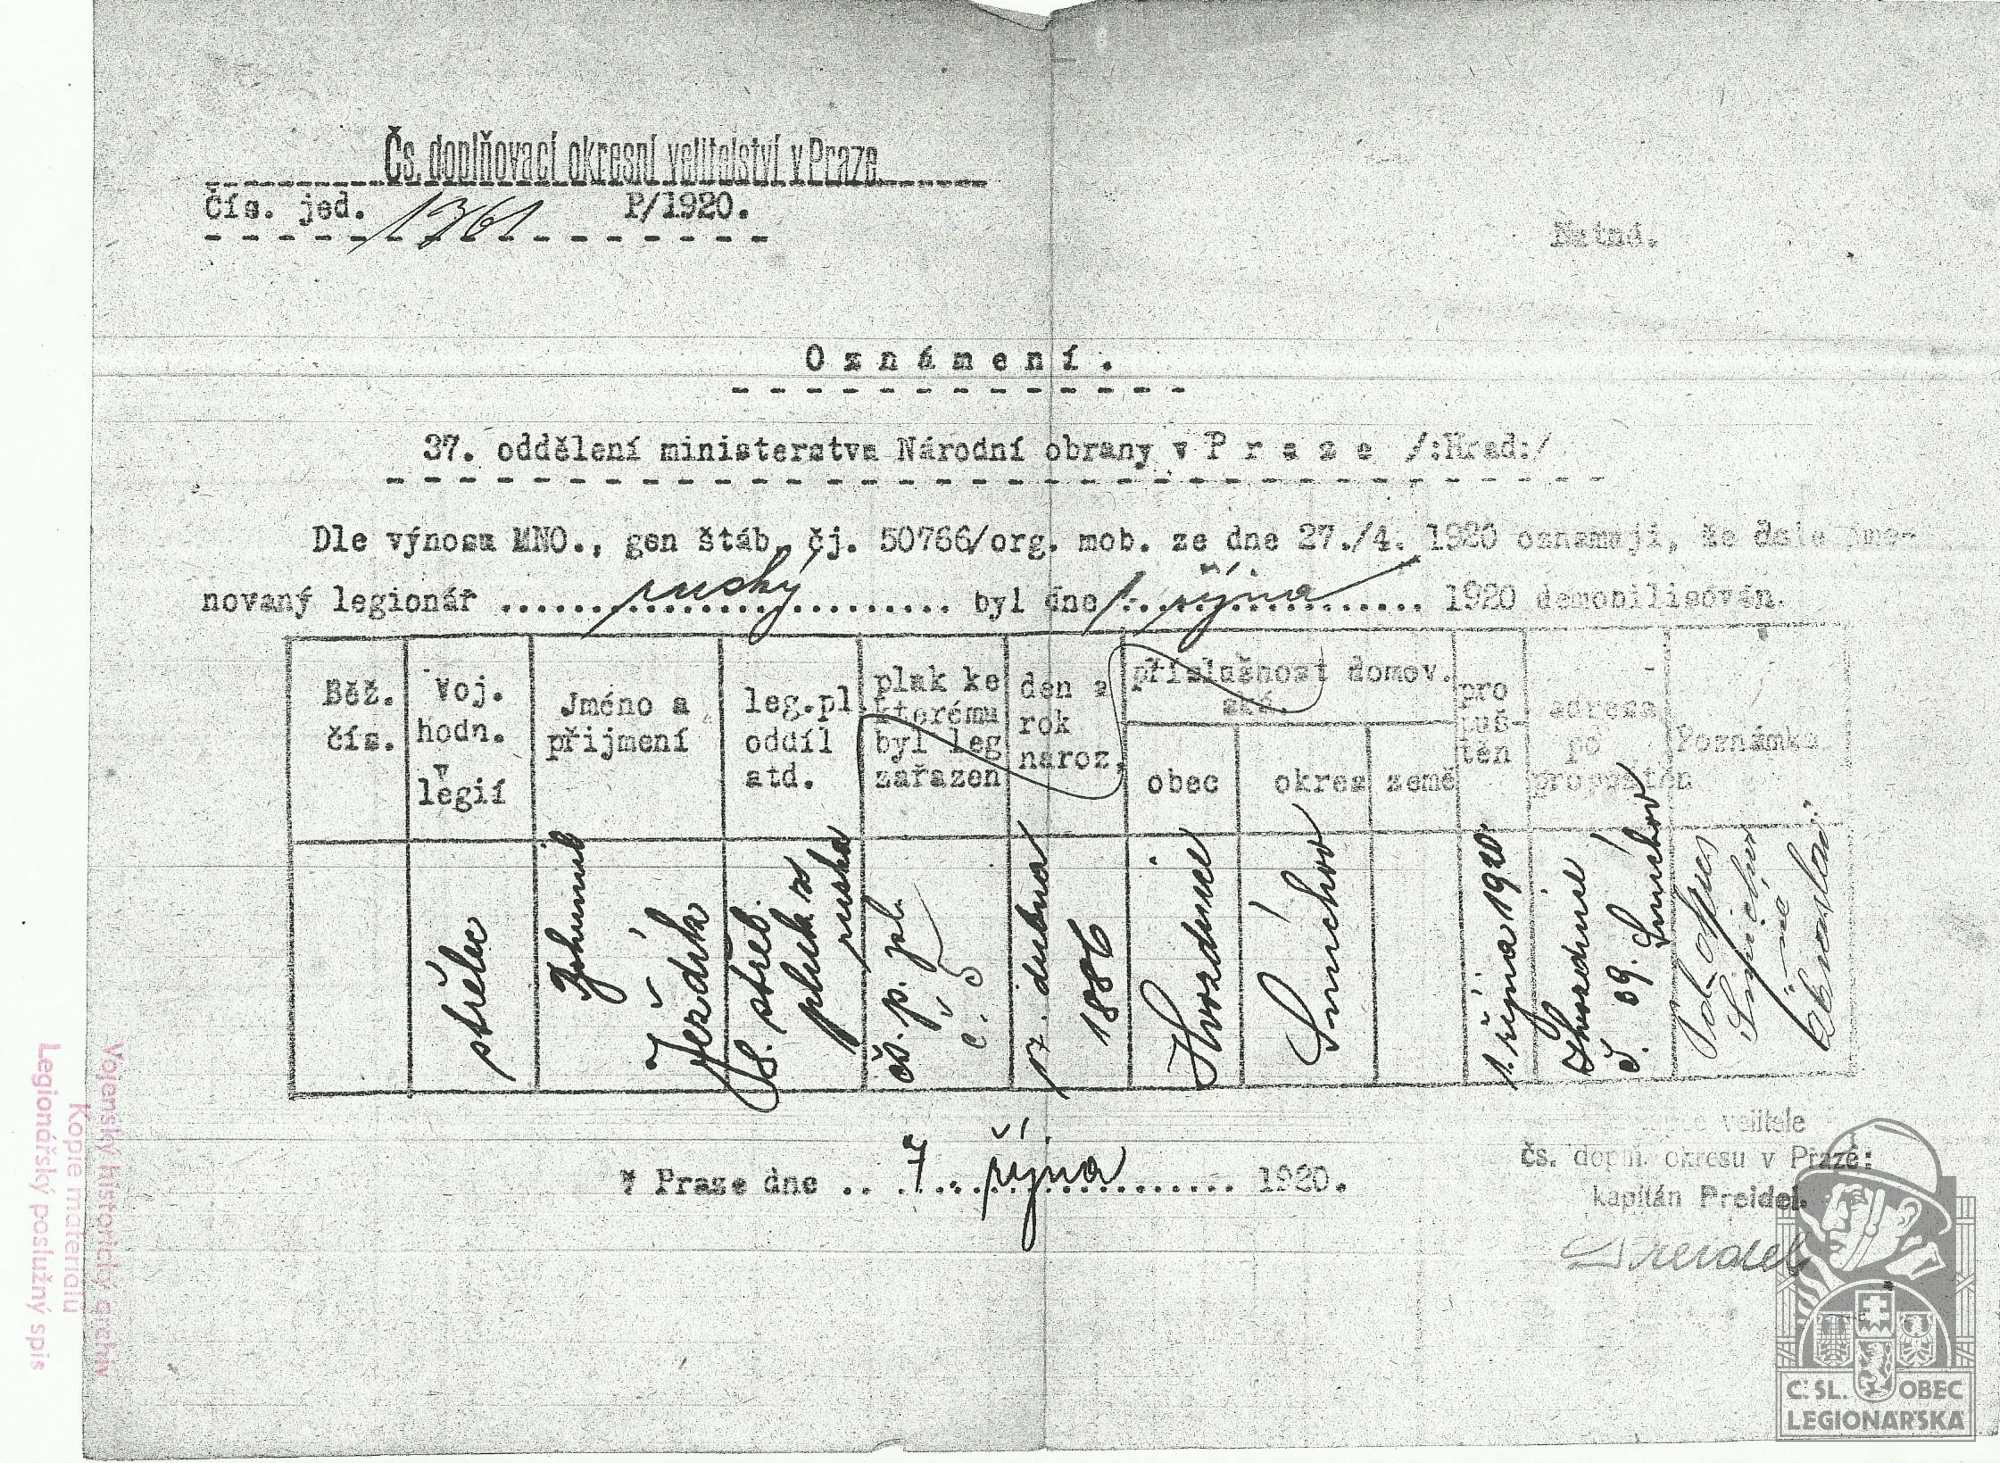 Čs. doplňovací okresní velitelství v Praze.
čís. jed. 1361 P/1920.
Oznámení.
37. oddělení ministerstva Národní obrany v Praze /:Hrad:/
Dle výnosu MNO., gen štáb, čj. 50766/org. mob. ze dne 27./4. 1920 oznamuji, že dole jme-
novaný legionář ruský byl dne 1. října 1920 demobilisován.
Běž. čís.
Voj. hodn. v legií
Jméno a příjmení
leg.pl. oddíl atd.
pluk ke kterému byl leg zařazen
den a rok naroz.
příslušnost domov. ská.
obec
okres
země
pro puš- těn
adresa po propuštěn
Poznámka
střelec
Bohumil Jezdík
8. střel. pluk z ruska
čs. p. pl. č. 5
17. dubna 1886
Hvozdnice
Smíchov
1. října 1920
Hvozdnice č. 39. Smíchov
V Praze dne 7. října 1920.
velitele
čs. dopln. okresu v Praze:
kapitán Preidel.
Preidel
Vojenský historický archiv
Kopie materiálu
Legionářský poslužný spis
Č. SL. OBEC
LEGIONÁŘSKÁ